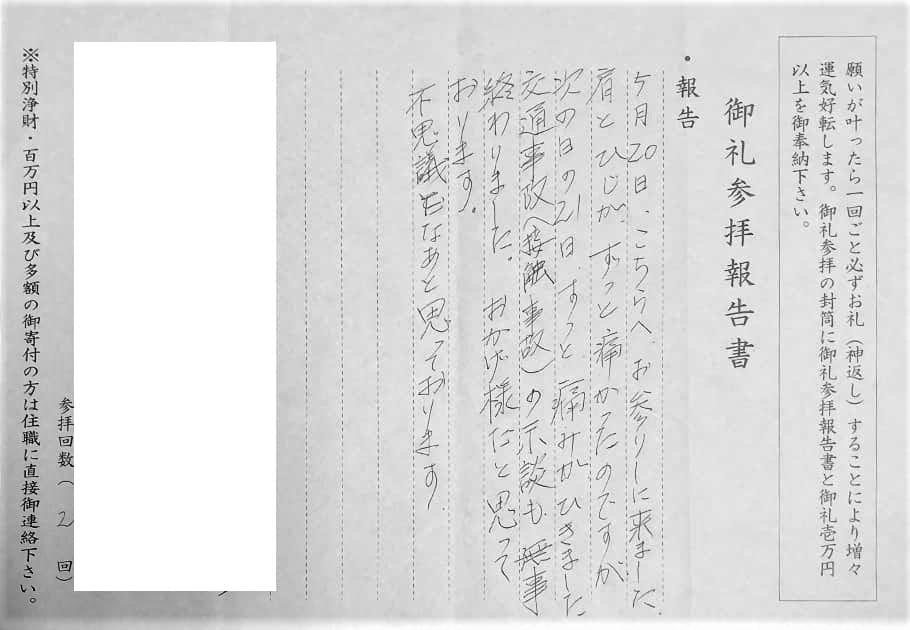 願いが叶ったら一回ごと必ずお礼（神返し）することにより増々
運気好転します。御礼参拝の封筒に御礼参拝報告書と御礼壱万円
以上を御奉納下さい。
御礼参拝報告書
・報告
5月20日、こちらへ、お参りに来ました。
肩とひじが、ずっと痛かったのですが
次の日の21日、すっと痛みがひきました
交通事故（接触事故）の示談も無事
終わりました。おかげ様だと思って
おります。
不思議だなあと思っております。
参拝回数（ 2 回）
※特別浄財・百万円以上及び多額の御寄付の方は住職に直接御連絡下さい。